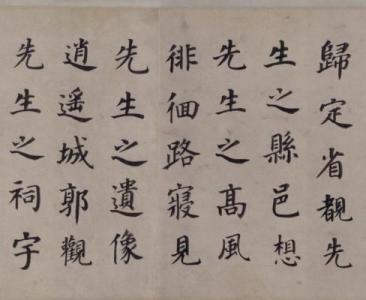 歸定省覩先
生之縣邑想
先生之髙風
徘徊路寢見
先生之遺像
逍遥城郭觀
先生之祠宇